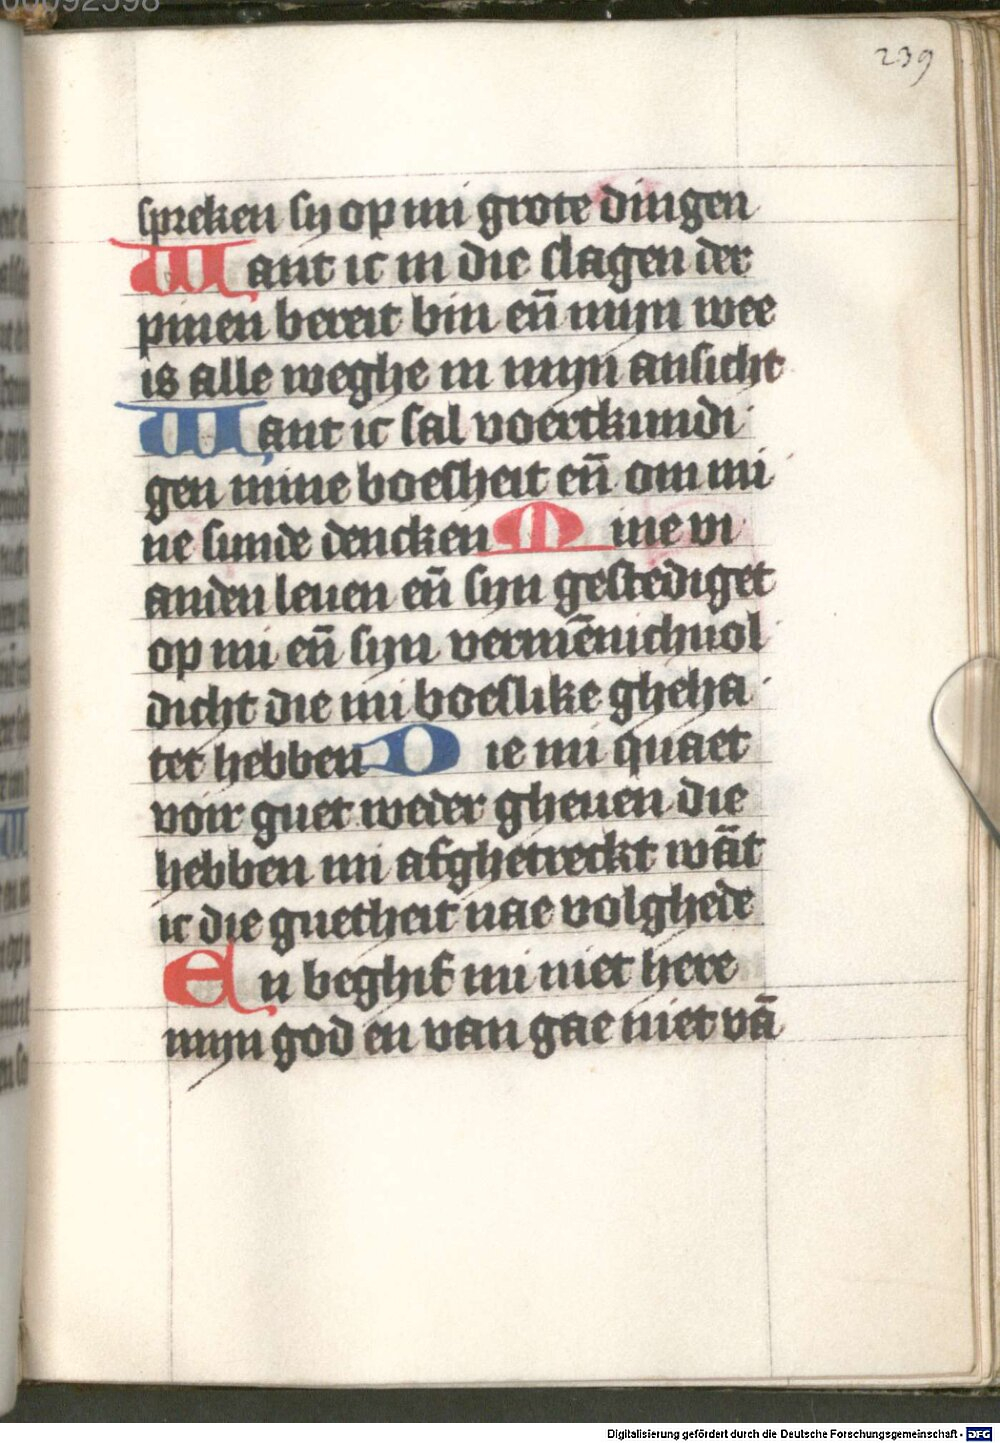 00092598
239
spreken sy op mi grote dingen
Want ic in die slagen der
pinen bereit bin en̄ mijn wee
is alle weghe in mijn ansicht
Want ic sal voertkundi
gen mine boesheit en̄ om mi
ne sunde dencken Mine vi
anden leuen en̄ sijn gestediget
op mi en̄ sijn vermēnichuol
dicht die mi boeslike gheha
tet hebben Die mi quaet
voir guet weder gheuen die
hebben mi afghetreckt wāt
ic die guetheit nae volghede
En beghif mi niet here
mijn god en van gae niet vā
Digitalisierung gefördert durch die Deutsche Forschungsgemeinschaft - DFG